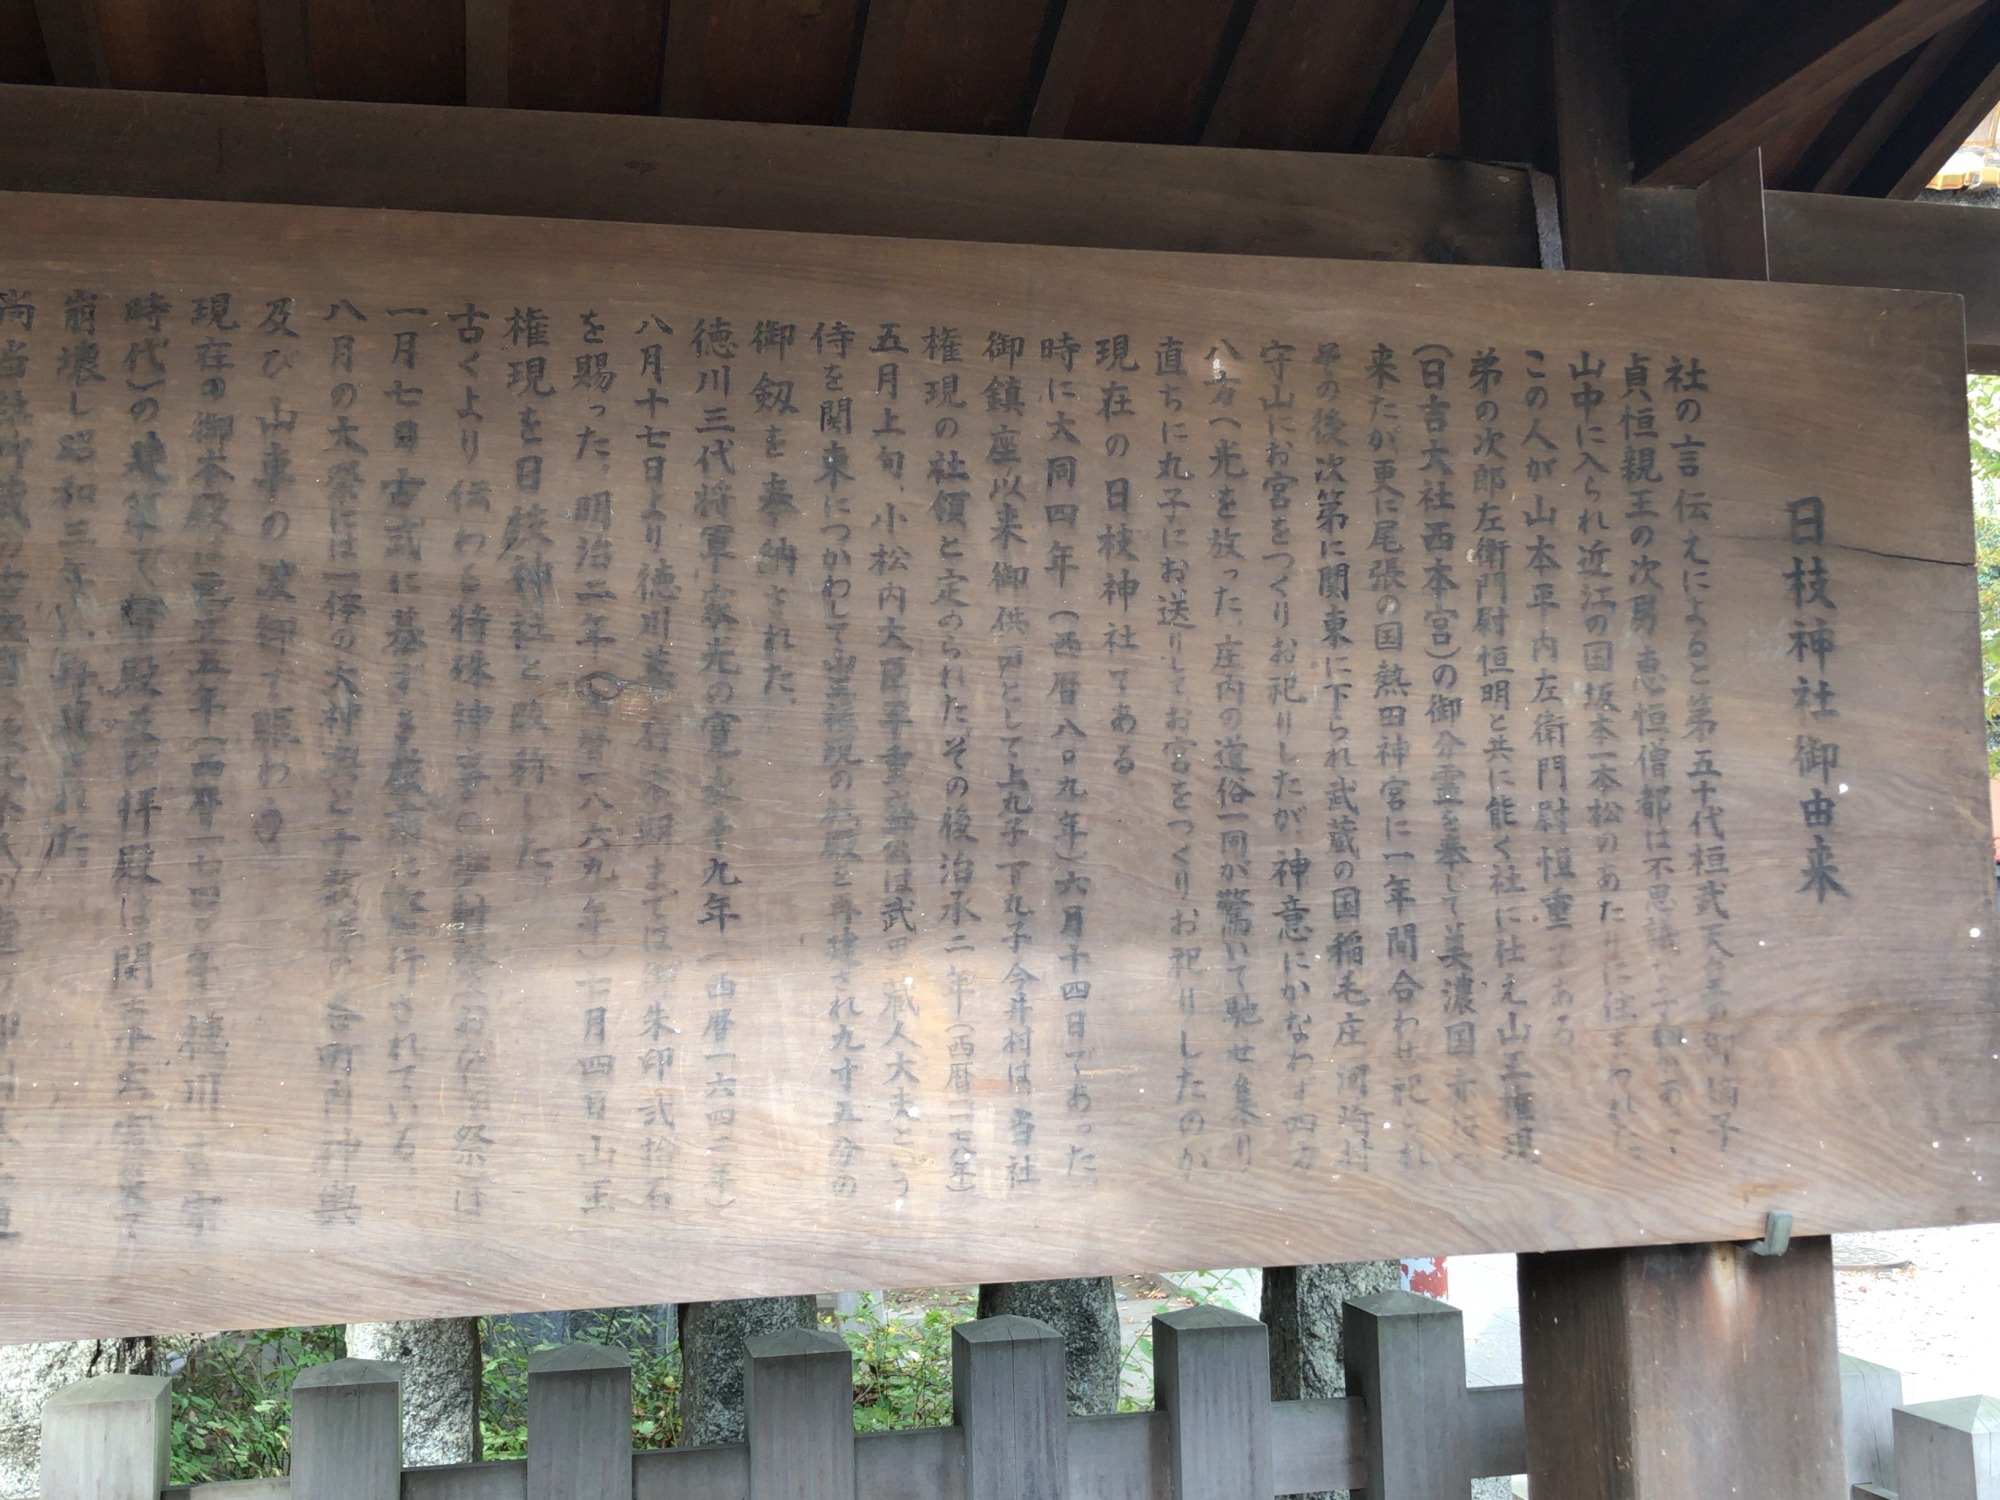 日枝神社御由来
社の言伝えによると第五十代桓武天皇の
貞恒親王の次男恵恒僧都は不思議
山中に入られ近江の国坂本一本松のあたりに住まわれた
この人が山本平内左衛門尉恒重である
弟の次郎左衛門尉恒明と共に能く社に仕え山王権現
(日吉大社西本宮)の御分霊を奉して美濃国
来たが更に尾張の国熱田神宮に一年間合わせ祀られ
その後次第に関東に下られ武蔵の国稲毛庄河崎村
守山にお宮をつくりお祀りしたが、神意にかなわず四方
八方へ光を放った、座内の道俗一同が驚いて馳せ集り
直ちに丸子にお送りしてお宮をつくりお祀りしたのが
現在の日枝神社である
時に大同四年(西暦八〇九年)六月十四日であった、
御鎮座以来御供戸として上丸子下丸子今井村は当社
権現の社領と定められた、その後治承二年(西暦一一七八年)
五月上旬、小松内大臣平重盛公は武田蔵人大夫という
侍を関東につかわして山王権現の社殿を再建され九十五分の
御剱を奉納された、
徳川三代将軍家光の寛永十九年(西暦一六四二年)
八月十七日より徳川幕府末期までは御朱印弐拾石
を賜った、明治二年(西暦一八六九年)七月四日山王
権現を日枝神社と改称した、
古くより伝わる特殊神事の歩射祭(おびしゃ祭)は
一月七日古式に基ずき厳粛に執行されている、
八月の大祭には一停の大神輿と十数停の各町内神輿
及び山車の渡御で賑わう
現在の御本殿は元文五年(西暦一七四〇年徳川吉宗
時代)の建築で幣殿及び拝殿は関東大震災で
崩壊し昭和三年代再建された、